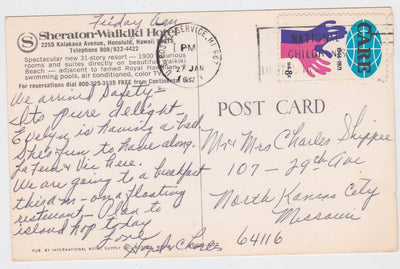 Friday am
Sheraton-Waikiki Hotel
2255 Kalakaua Avenue, Honolulu, Hawaii
Telephone 808/922-4422
Spectacular new 31-story resort - 1900
luxurious rooms on beautiful Waikiki
Beach - adjacent to famed Royal Hawaiian
swimming pools, air conditioned, color TV
For reservations dial 800-325-3535 FREE from Continental
We arrived safely-
Its pure delight-
Evelyn is having a ball
She's fun to have along.
La Fern & Vic here.
We are going to a breakfast
this a.m - on a floating
restuarant - Plan to
island hop today
Love
PUB. BY INTERNATIONAL HOTEL SUPPLY
POSTAL SERVICE, HI 967
PM
27 JAN
NATIONAL
CHILDREN
CARE
8c
POST CARD
Mr & Mrs Charles Skippee
107 - 29th Ave
North Kansas City
Missouri
64116